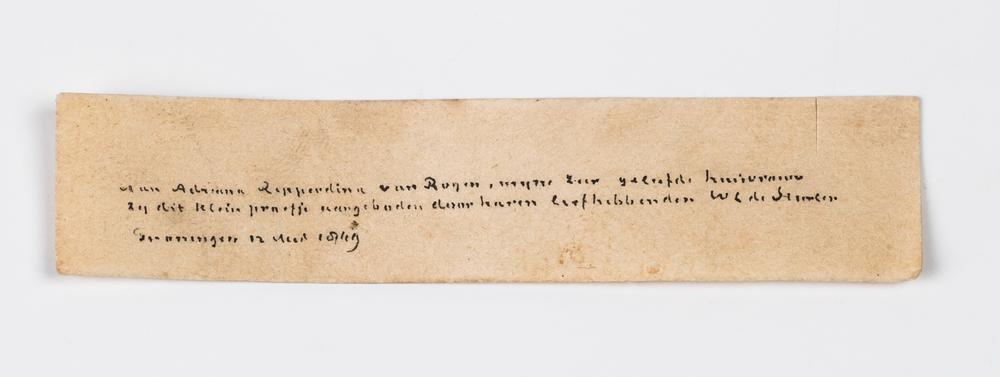 Aan Adriana Repperdina van Royen, myne zeer geliefde huisvrouw
zy dit klein proefje aangeboden door haren liefhebbenden W L de Sturler
Groningen 12 Mei 1849